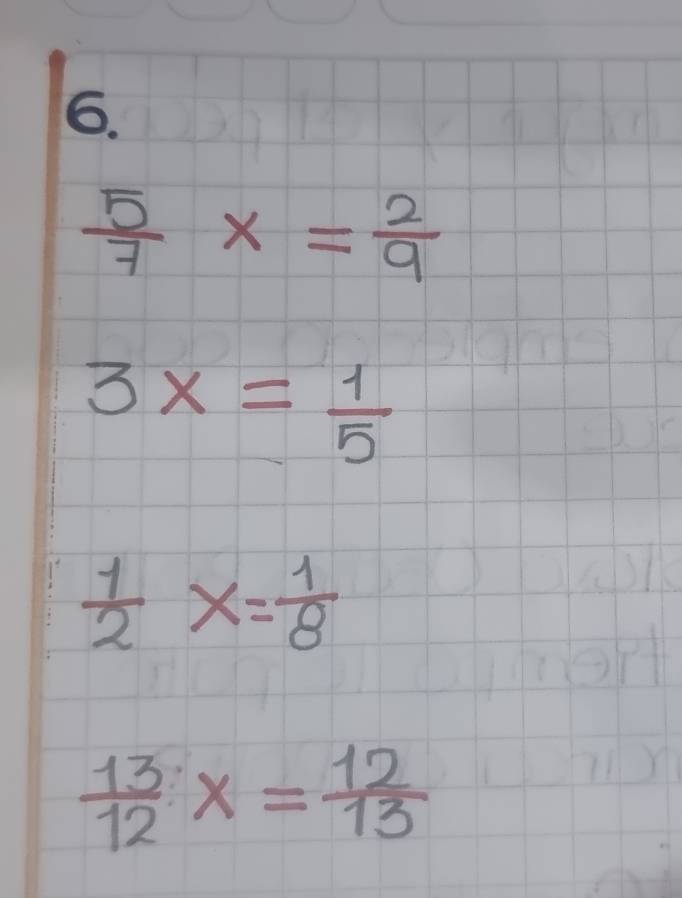 6.
5/7 x = 2/9
3x = 1/5
1/2 x = 1/8
13/12 x = 12/13